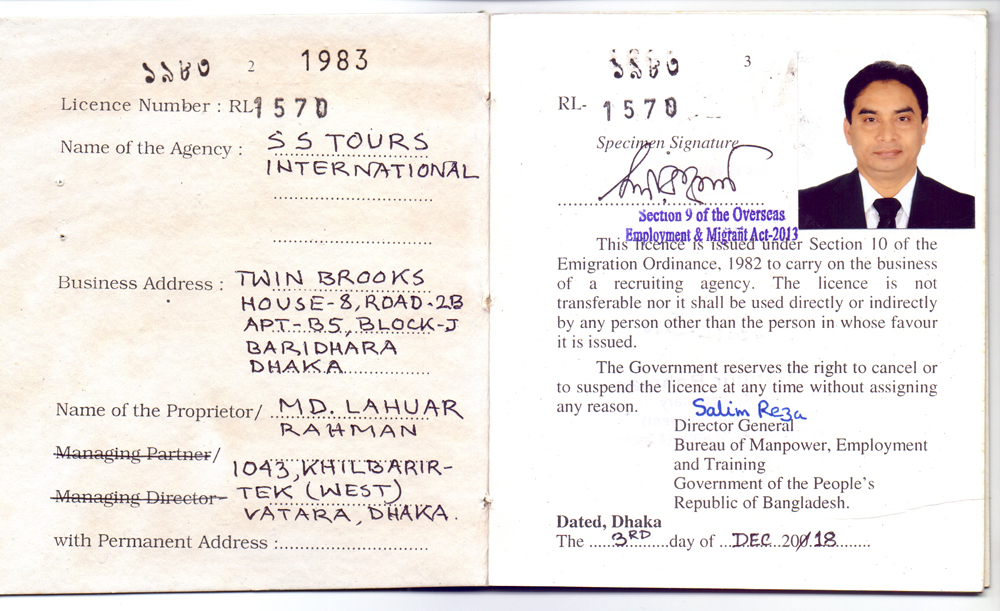 ১৯৮৩ 2 1983
Licence Number : RL 1570
Name of the Agency : S S TOURS
INTERNATIONAL
Business Address : TWIN BROOKS
HOUSE-8, ROAD-2B
APT-B5, BLOCK-J
BARIDHARA
DHAKA
Name of the Proprietor/ MD. LAHUAR
RAHMAN
Managing Partner/
1043, KHILBARIR-
Managing Director- TEK (WEST)
VATARA, DHAKA.
with Permanent Address :
3
RL- 1570
Specimen Signature
Section 9 of the Overseas
Employment & Migrant Act-2013
This licence is issued under Section 10 of the
Emigration Ordinance, 1982 to carry on the business
of a recruiting agency. The licence is not
transferable nor it shall be used directly or indirectly
by any person other than the person in whose favour
it is issued.
The Government reserves the right to cancel or
to suspend the licence at any time without assigning
any reason.
Salim Reza
Director General
Bureau of Manpower, Employment
and Training
Government of the People's
Republic of Bangladesh.
Dated, Dhaka
The 3RD day of DEC 2018